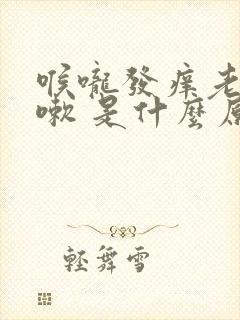 喉嚨發癢老
嗽是什麼原
輕舞雪